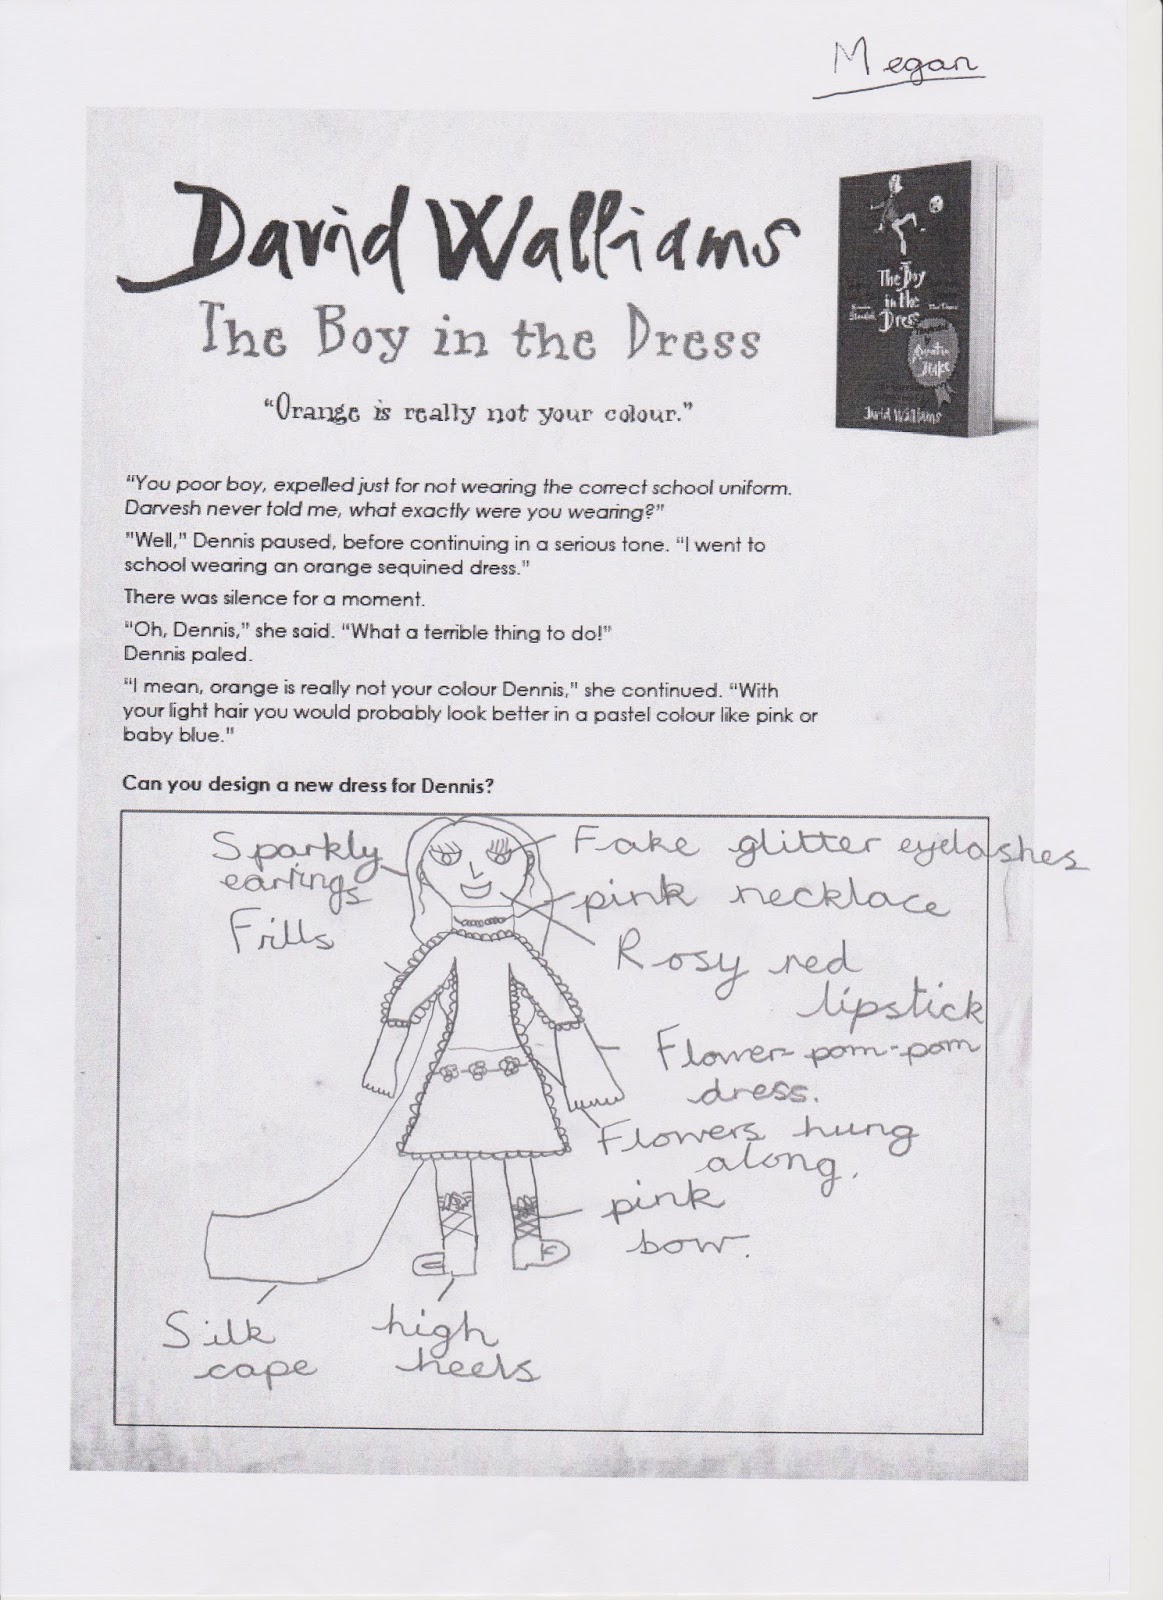 Megan
David Walliams
The Boy in the Dress
"Orange is really not your colour."
The Boy
in the
Dress
David Walliams
"You poor boy, expelled just for not wearing the correct school uniform.
Darvesh never told me, what exactly were you wearing?"
"Well," Dennis paused, before continuing in a serious tone. "I went to
school wearing an orange sequined dress."
There was silence for a moment.
"Oh, Dennis," she said. "What a terrible thing to do!"
Dennis paled.
"I mean, orange is really not your colour Dennis," she continued. "With
your light hair you would probably look better in a pastel colour like pink or
baby blue."
Can you design a new dress for Dennis?
Sparkly
earrings
Frills
Fake glitter eyelashes
pink necklace
Rosy red
lipstick
Flower-pom-pom
dress.
Flowers hung
along.
pink
bow.
Silk
cape
high
heels